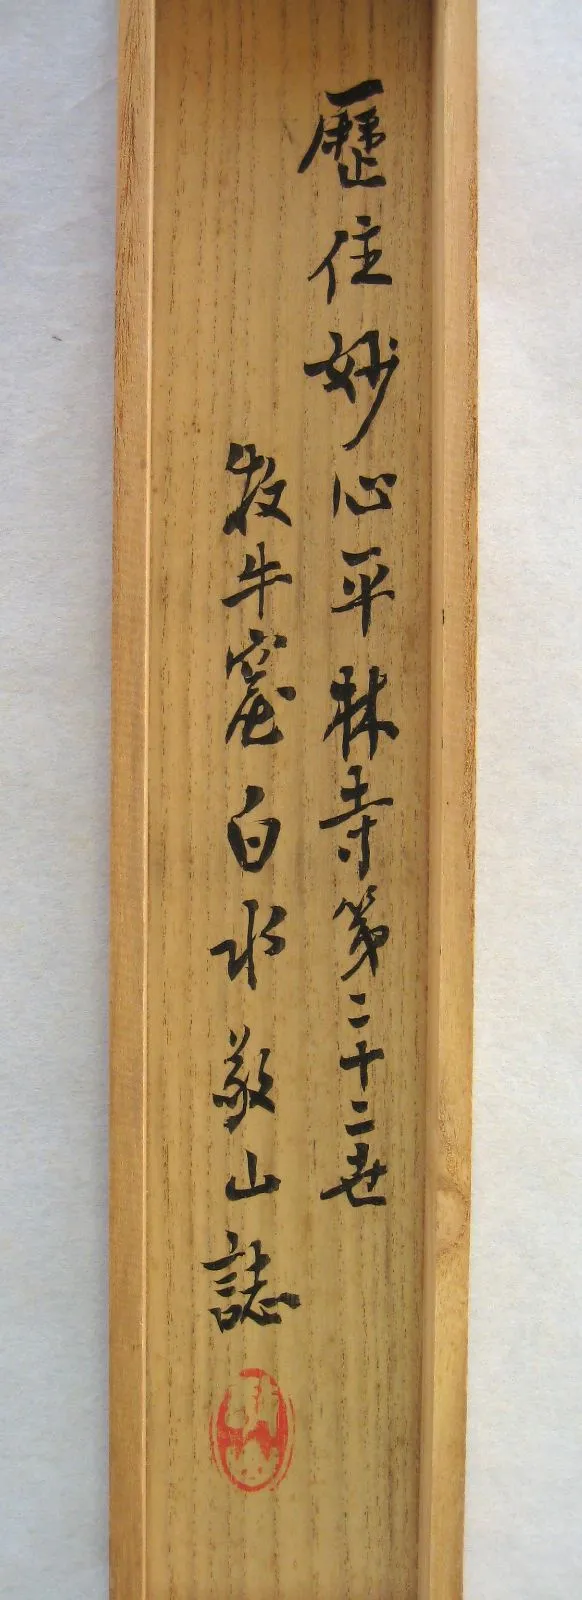 歴住妙心平林寺第二十二世
牧牛窟白水敬山誌